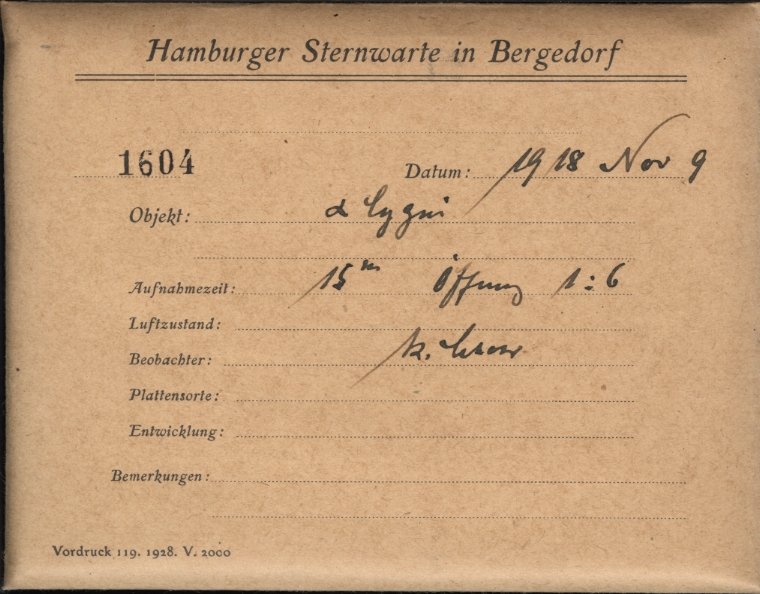 Hamburger Sternwarte in Bergedorf
1604 Datum: 1918 Nov 9
Objekt: α Cygni
Aufnahmezeit: 15ᵐ Öffnung 1:6
Luftzustand:
Beobachter: K.
Plattensorte:
Entwicklung:
Bemerkungen:
Vordruck 119. 1928. V. 2000